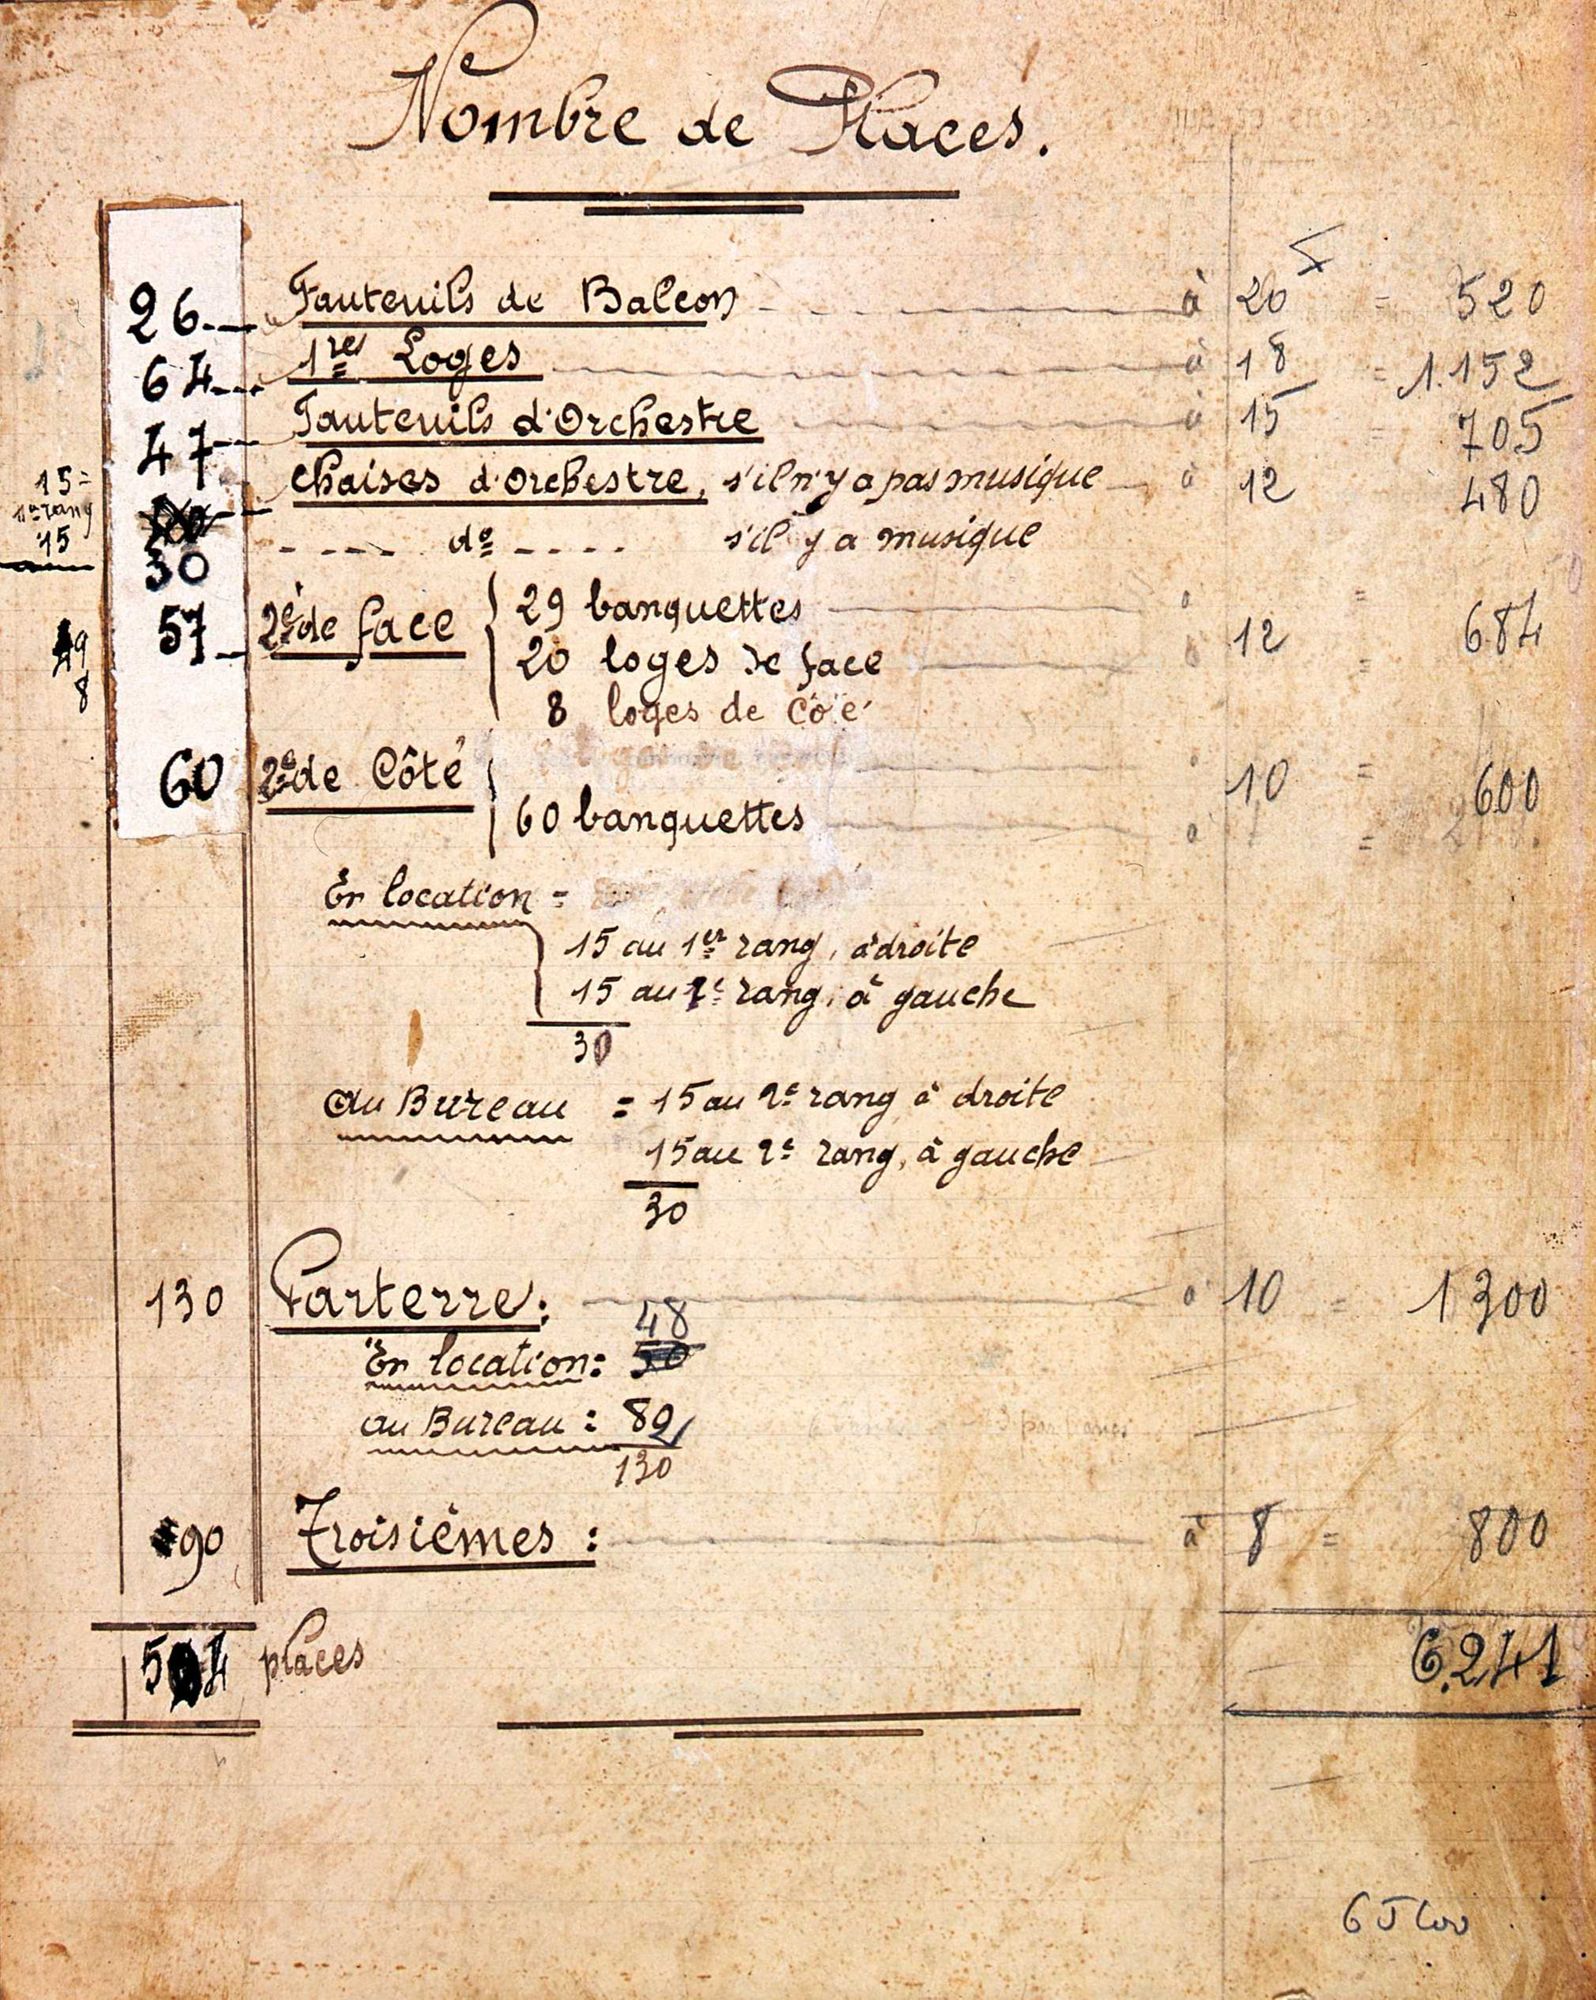 Nombre de Places.
26 Fauteuils de Balcon à 20 F = 520
64 1res Loges à 18 = 1.152
47 Fauteuils d'Orchestre à 15 = 705
15 = Chaises d'Orchestre, s'il n'y a pas musique à 12 480
1er rang
15
30 do s'il y a musique
57 2e de face 29 banquettes à =
20 loges de face à 12 = 684
49
8 8 loges de Côté
60 2e de Côté à 10 = 600
60 banquettes à =
En location =
15 au 1er rang, à droite
15 au 1e rang, à gauche
30
au Bureau = 15 au 2e rang à droite
15 au 2e rang, à gauche
30
130 Parterre : à 10 = 1300
48
En location : 50
au Bureau : 82
130
90 Troisièmes : à 8 = 800
504 places 6.241